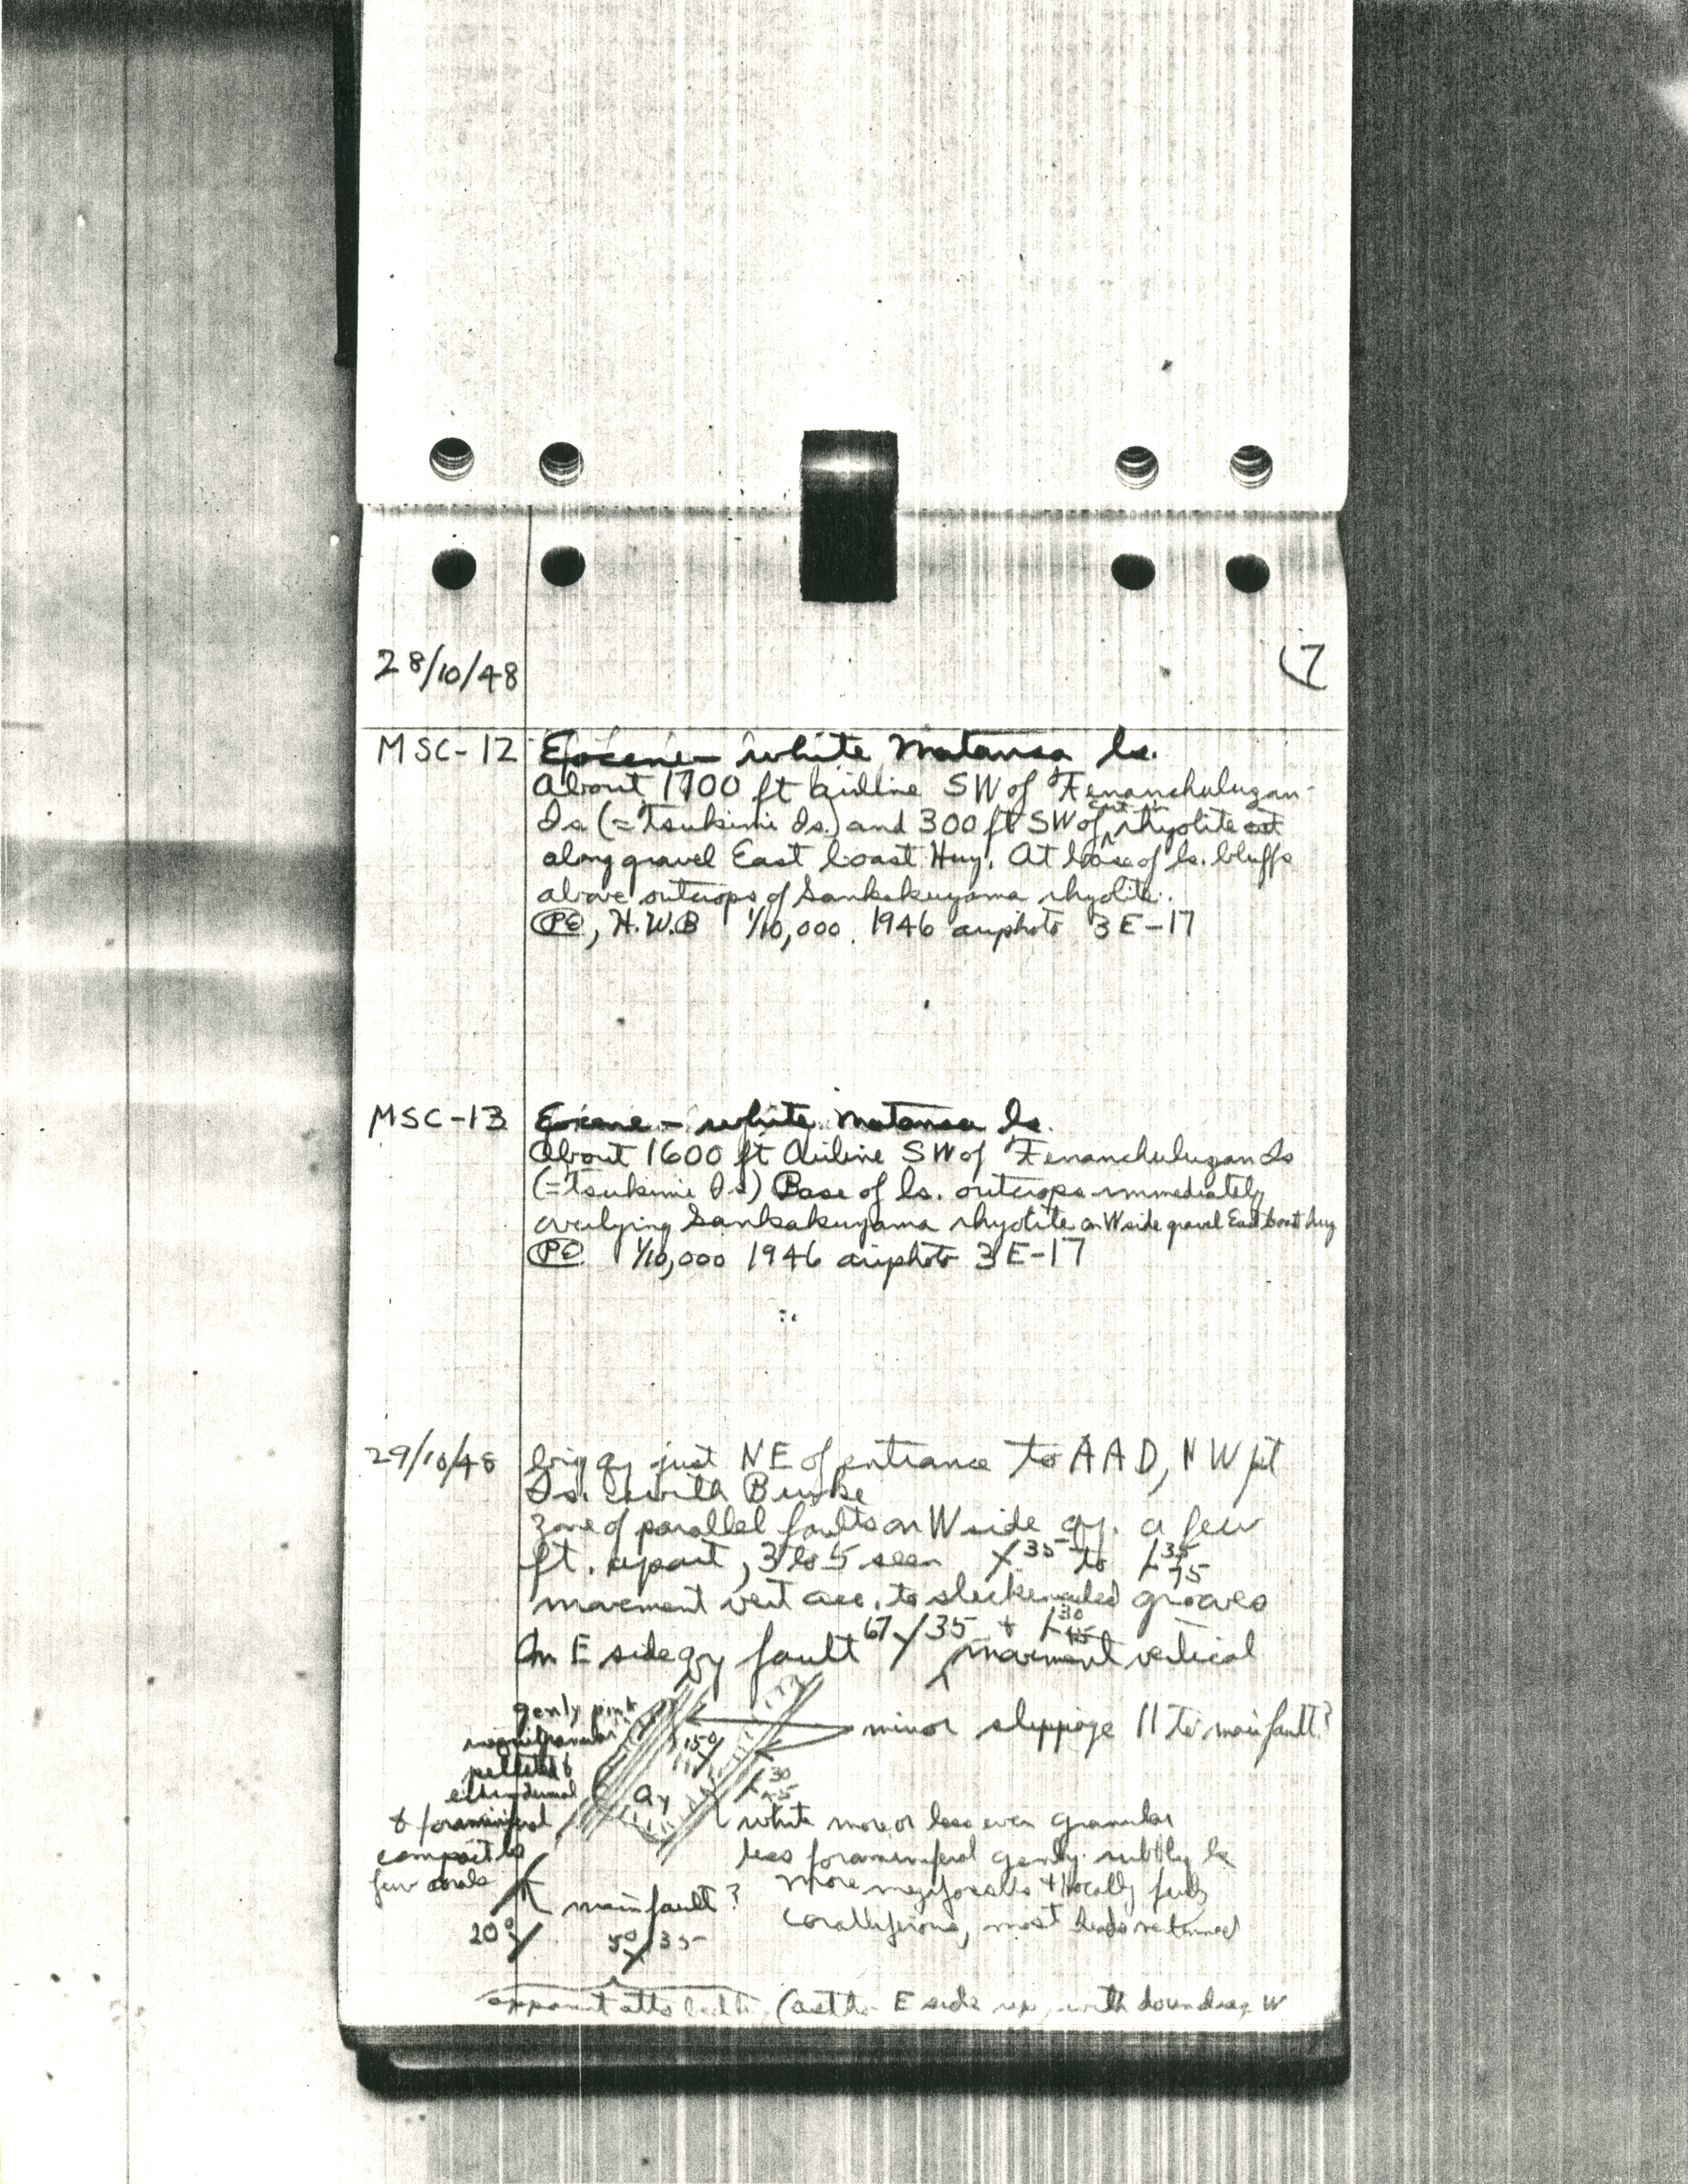 28/10/48
7
MSC-12 Eocene - white Matansa ls.
About 1700 ft airline SW of Fenanchulugan
Is (= Tsukimi Is.) and 300 ft SW of cut in rhyolite
along gravel East Coast Hwy. At base of ls. bluffs
above outcrops of Sankakuyama rhyolite.
PE, H.W.B 1/10,000 1946 airphoto 3E-17
MSC-13 Eocene - white Matansa ls.
About 1600 ft Airline SW of Fenanchulugan Is
(=Tsukimi Is) Base of ls. outcrops immediately
overlying Sankakuyama rhyolite on W side gravel East Coast Hwy
PE 1/10,000 1946 airphoto 3E-17
29/10/48 big qy just NE of entrance to AAD, NW pt
Is. with Burke
Zone of parallel faults on W side qy. a few
ft. apart, 3 to 5 seen 35 to 35 75
movement vert acc. to slickensided grooves
On E side qy fault 67 35 + 30 movement vertical
genly pink
pelleted &
& foraminiferal
compact ls
few corals
150
Qy
30
minor slippage || to main fault?
white more or less even granular
less foraminiferal genly. subtly ls
more megafossils + locally
coralliferous, most
main fault?
20°
50 35
apparent atts (E side up, with down drag W